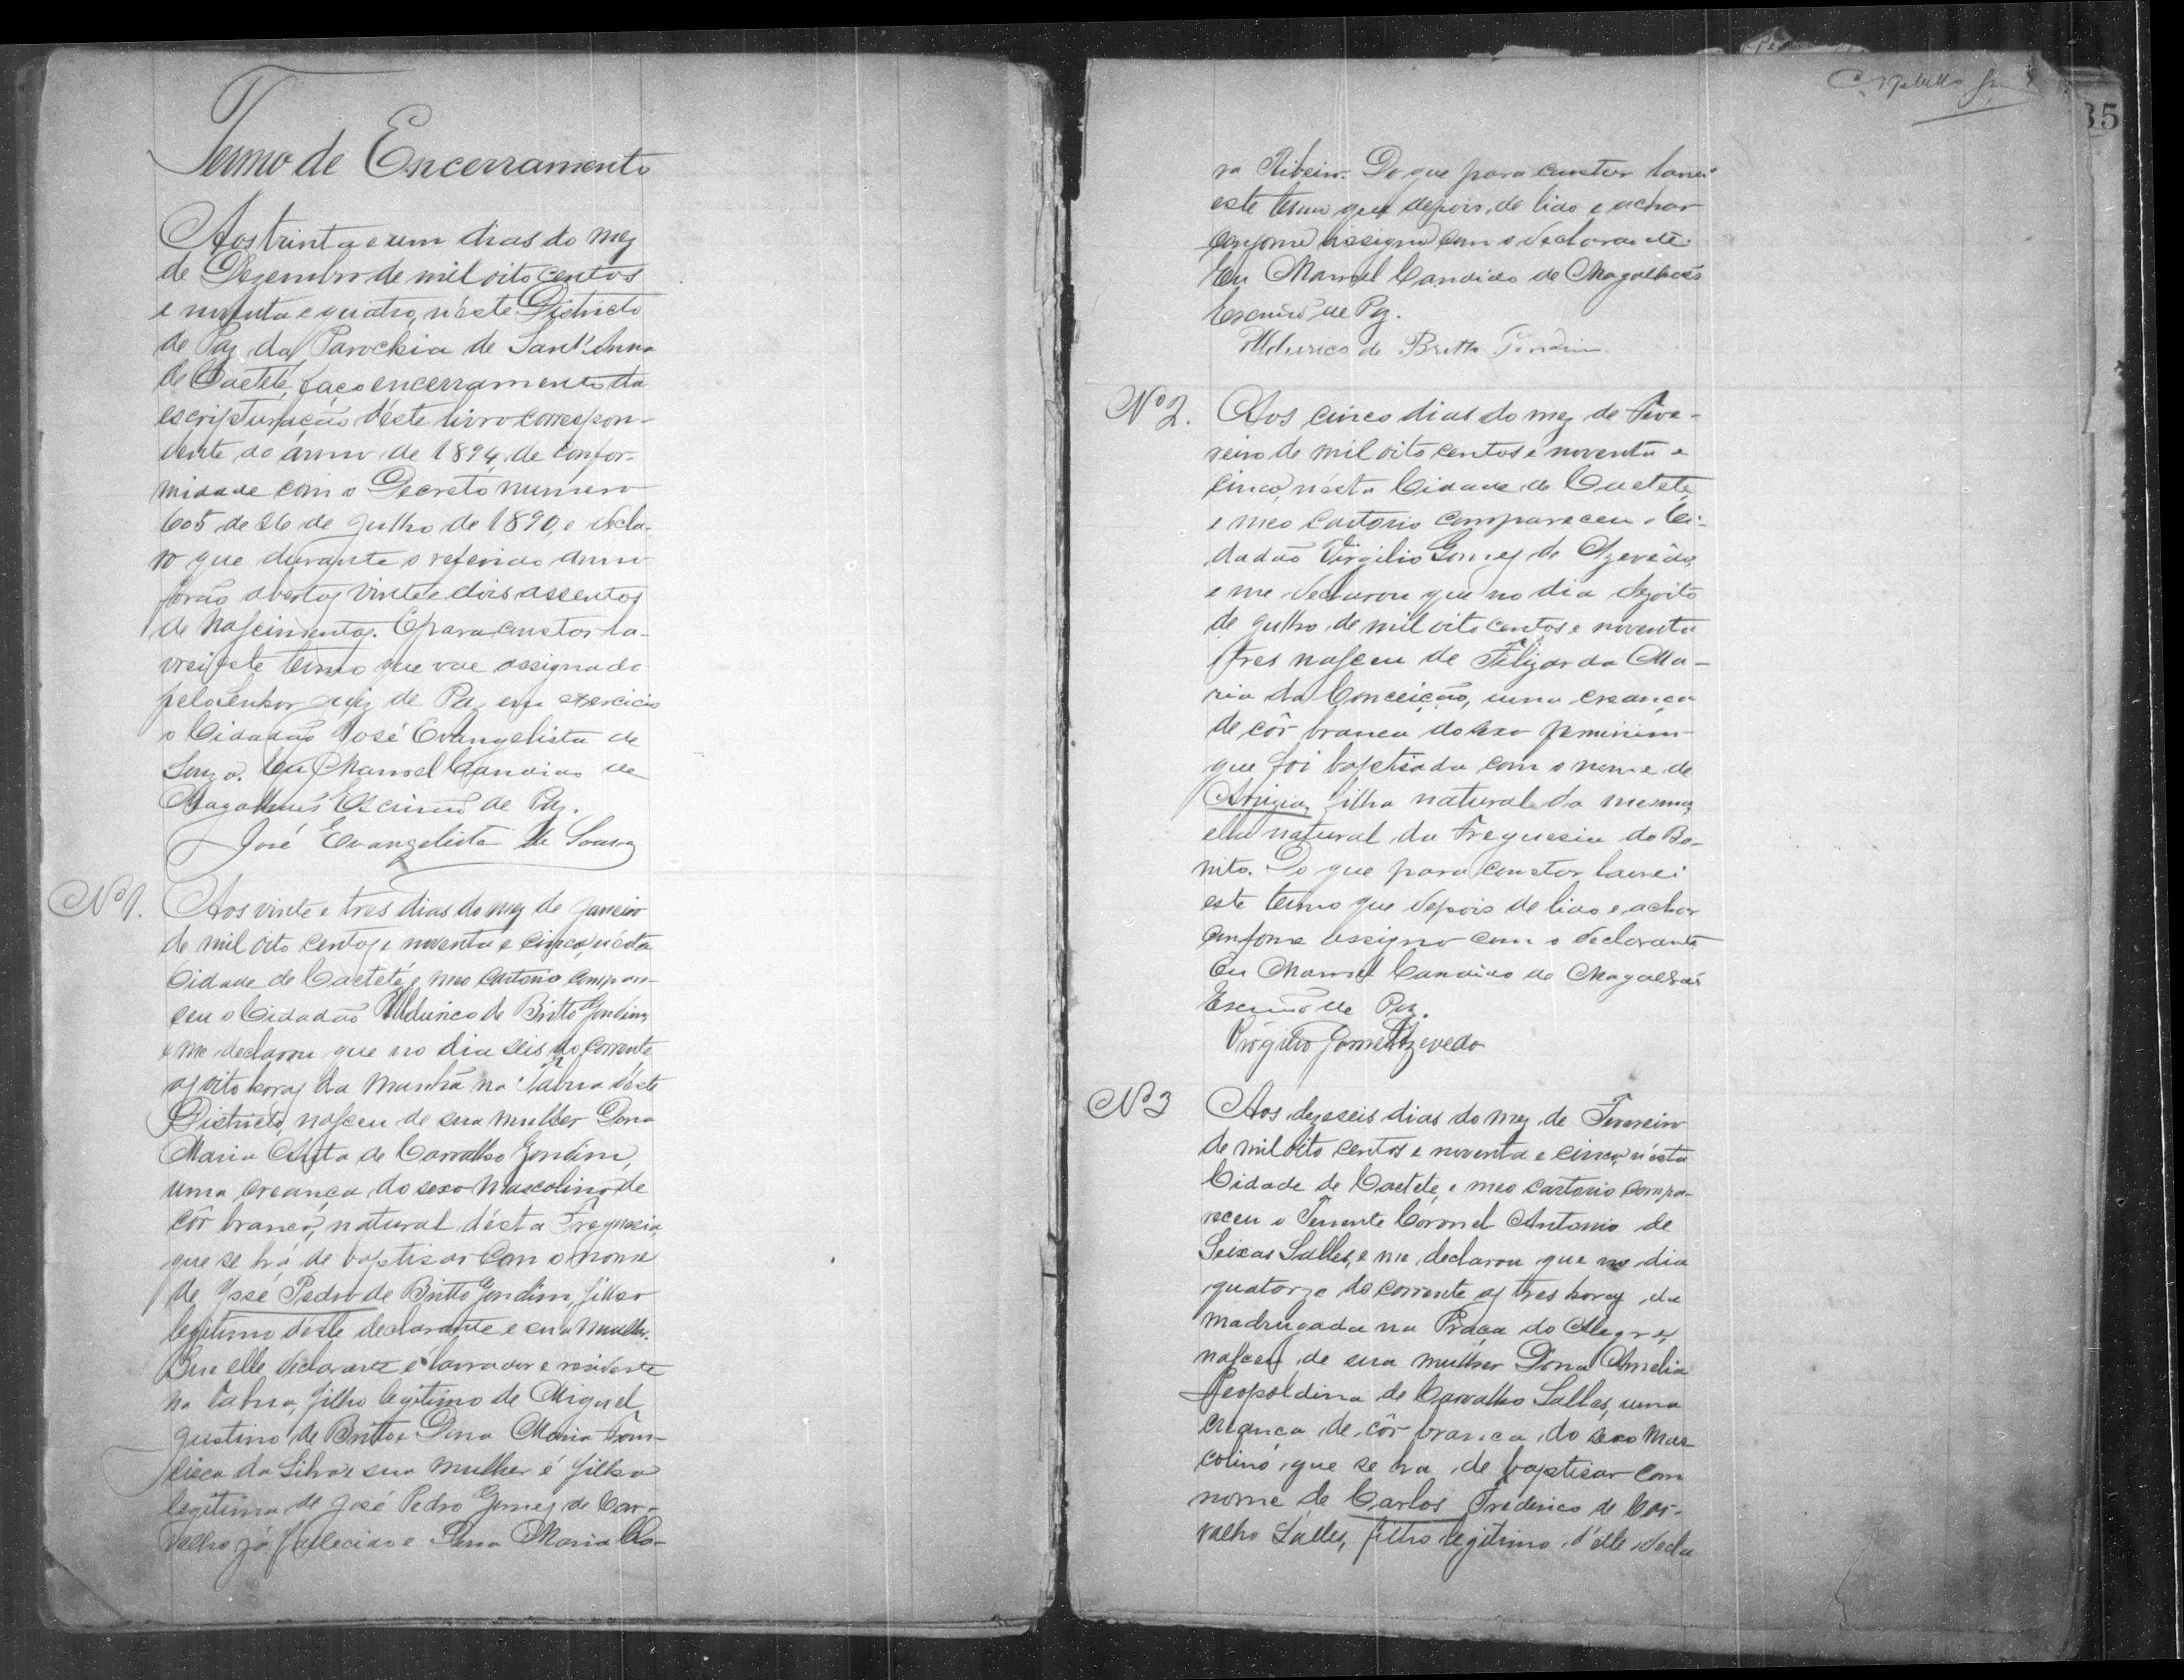 Termo de Encerramento
Aos trinta e um dias do mez
de Dezembro de mil oito centos
e noventa e quatro, n'éste Districto
de Paz da Parochia de Sant'Anna
de Caeteté, faço encerramento da
escripturação d'éste livro correspon-
dente ao anno de 1894, de confor-
midade com o Decreto numero
605 de 26 de Julho de 1890, e decla-
ro que durante o referido anno
forão abertos vinte e dois assentos
de Nascimentos. E para constar la-
vrei este termo que vae assignado
pelo Senhor Juiz de Paz em exercicio
o Cidadão José Evangelista de
Souza. Eu Manoel Candido de
Magalhães Escrivão de Paz.
José Evangelista de Souza
Nº 1. Aos vinte e tres dias do mez de Janeiro
de mil oito centos e noventa e cinco, n'ésta
Cidade de Caeteté, e meo cartorio compare-
ceu o Cidadão Uldurico de Britto Gondim,
e me declarou que no dia seis do corrente
as oito horas da manhã na Tabua d'éste
Districto, nasceu de sua mulher Dona
Maria Anta de Carvalho Gondim,
uma creança do sexo masculino de
côr branca, natural d'ésta Freguesia,
que se há de baptisar com o nome
de José Pedro de Britto Gondim, filho
legitimo d'este declarante e sua mulher.
Que elle declarante é lavrador e residente
na Tabua, filho legitimo de Miguel
Justino de Britto e Dona Maria Fran-
cisca da Silva e sua mulher é filha
legitima de José Pedro Gomes de Car-
valho já fallecido e Dona Maria Cla-
35
ra Ribeiro. Do que para constar lavrei
este termo que depois de lido e achar
conforme assigno com o declarante.
Eu Manoel Candido de Magalhães
Escrivão de Paz.
Uldurico de Britto Gondim
Nº 2. Aos cinco dias do mez de Feve-
reiro de mil oito centos e noventa e
cinco, n'ésta Cidade de Caeteté,
e meo cartorio compareceu o Ci-
dadão Virgilio Gomes de Azevedo,
e me declarou que no dia dezoito
de Julho de mil oito centos e noventa
e tres nasceu de Felizarda Ma-
ria da Conceição, uma creança
de côr branca do sexo feminino
que foi baptisada com o nome de
Arigia, filha natural da mesma,
ella natural da Freguesia do Bo-
nito. Do que para constar lavrei
este termo que depois de lido e achar
conforme assigno com o declarante
Eu Manoel Candido de Magalhães
Escrivão de Paz.
Virgilio Gomes Azevedo
Nº 3 Aos dezeseis dias do mez de Fevereiro
de mil oito centos e noventa e cinco, n'ésta
Cidade de Caeteté, e meo cartorio compa-
receu o Tenente Coronel Antonio de
Seixas Salles, e me declarou que no dia
quatorze do corrente as tres horas da
madrugada na Praça do Alegre,
nasceu de sua mulher Dona Amelia
Leopoldina de Carvalho Salles, uma
creança de côr branca, do sexo mas-
colino, que se ha de baptisar com
nome de Carlos Frederico de Car-
valho Salles, filho legitimo d'elle decla